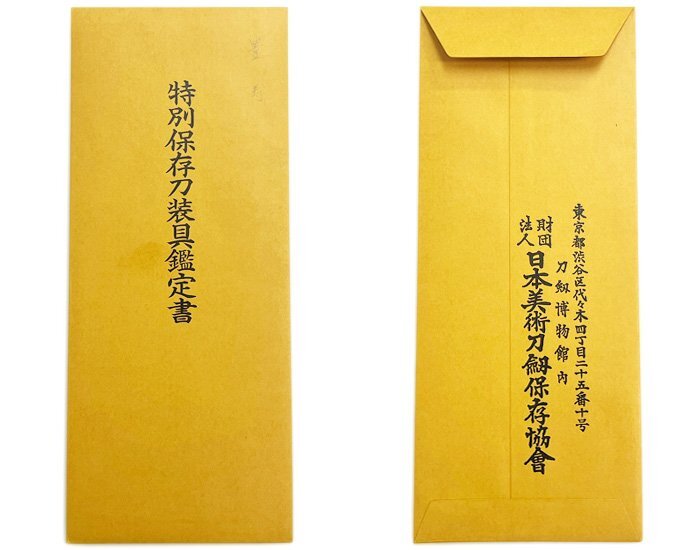 特別保存刀装具鑑定書
東京都渋谷区代々木四丁目二十五番十号
刀剱博物館内
財団法人
日本美術刀剱保存協會